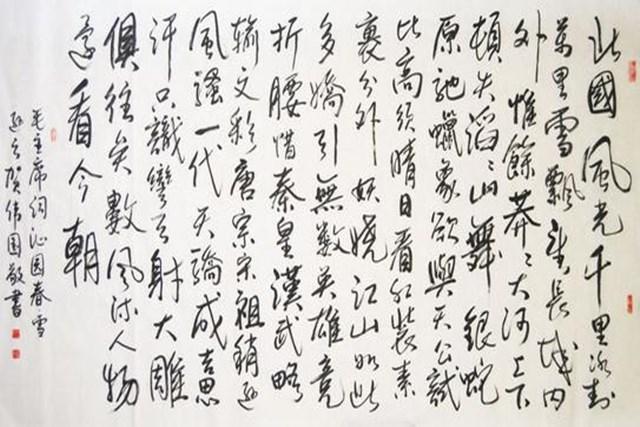 北國風光千里冰封
萬里雪飄望長城内
外惟餘莽〻大河上下
頓失滔〻山舞銀蛇
原馳蠟象欲與天公試
比高須晴日看红裝素
裹分外妖娆江山如此
多嬌引無數英雄竞
折腰惜秦皇漢武略
输文彩唐宗宋祖稍逊
風骚一代天驕成吉思
汗只識彎弓射大雕
俱往矣數風流人物
還看今朝
毛主席词沁园春雪
贺伟国敬書